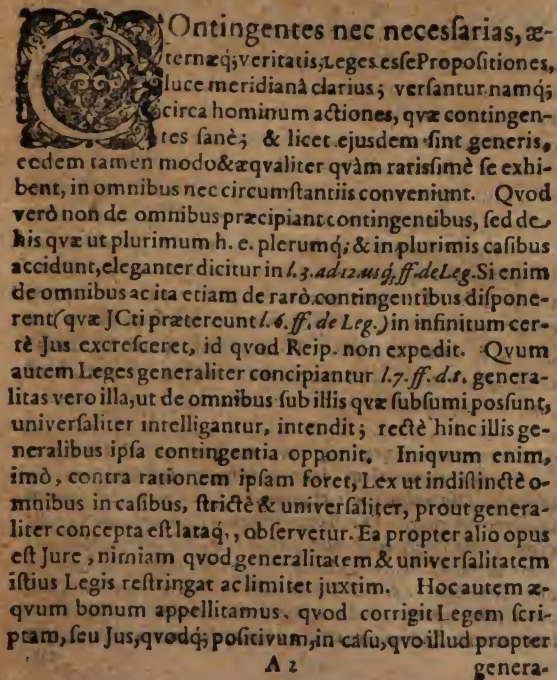 COntingentes nec necesſarias, æ-
ternæq́; veritatis, Leges eſſe Propoſitiones,
luce meridianâ clarius; verſantur namq́;
circa hominum actiones, qvæ contingen-
tes ſanè; & licet ejusdem ſint generis,
eodem tamen modo & æqvaliter qvàm rarisſimè ſe exhi-
bent, in omnibus nec circumſtantiis conveniunt. Qvod
verò non de omnibus præcipiant contingentibus, ſed de
his qvæ ut plurimum h. e. plerumq́; & in plurimis caſibus
accidunt, eleganter dicitur in l. 3. ad 12. usq́, ff. de Leg. Si enim
de omnibus ac ita etiam de rarò contingentibus diſpone-
rent (qvæ JCti prætereunt l. 6. ff. de Leg.) in infinitum cer-
tè Jus excreſceret, id qvod Reip. non expedit. Qvum
autem Leges generaliter concipiantur l. 7. ff. d. t. genera-
litas vero illa, ut de omnibus ſub illis qvæ ſubſumi poſſunt,
univerſaliter intelligantur, intendit; rectè hinc illis ge-
neralibus ipſa contingentia opponit. Iniqvum enim,
imò, contra rationem ipſam foret, Lex ut indiſtinctè o-
mnibus in caſibus, ſtrictè & univerſaliter, prout genera-
liter concepta eſt lataq́,, obſervetur. Ea propter alio opus
eſt Jure, nimiam qvod generalitatem & univerſalitatem
iſtius Legis reſtringat ac limitet juxtim. Hoc autem æ-
qvum bonum appellitamus, qvod corrigit Legem ſcri-
ptam, ſeu Jus, qvodq́; poſitivum, in caſu, qvo illud propter
A 2 genera-